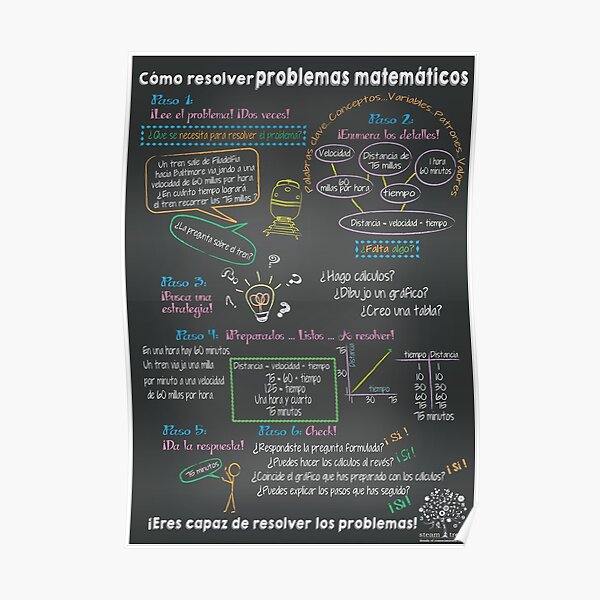 Cómo resolver problemas matemáticos
Paso 1:
¡Lee el problema! ¡Dos veces!
¿Qué se necesita para resolver el problema?
Un tren sale de Filadelfia
hacia Baltimore viajando a una
velocidad de 60 millas por hora.
¿En cuánto tiempo logrará
el tren recorrer las 75 millas?
¿La pregunta sobre el tren?
Palabras clave...Conceptos...Variables...Patrones...Valores
Paso 2:
¡Enumera los detalles!
Velocidad
Distancia de
75 millas
1 hora
60 minutos
60
millas por hora
tiempo
Distancia = velocidad • tiempo
¿Falta algo?
Paso 3:
¡Busca una
estrategia!
? ? ? ?
¿Hago cálculos?
¿Dibujo un gráfico?
¿Creo una tabla?
Paso 4: ¡Preparados ... Listos ... A resolver!
En una hora hay 60 minutos.
Un tren viaja una milla
por minuto a una velocidad
de 60 millas por hora.
Distancia = velocidad • tiempo
75 = 60 • tiempo
1.25 = tiempo
Una hora y cuarto
75 minutos
75
Distancia
30
1
tiempo
1 30 75
tiempo Distancia
1 1
10 10
30 30
60 60
75 75
75 minutos
Paso 5:
¡Da la respuesta!
75 minutos
Paso 6: Check!
¿Respondiste la pregunta formulada? ¡Sí!
¿Puedes hacer los cálculos al revés? ¡Sí!
¿Coincide el gráfico que has preparado con los cálculos? ¡Sí!
¿Puedes explicar los pasos que has seguido? ¡Sí!
¡Eres capaz de resolver los problemas!
steam